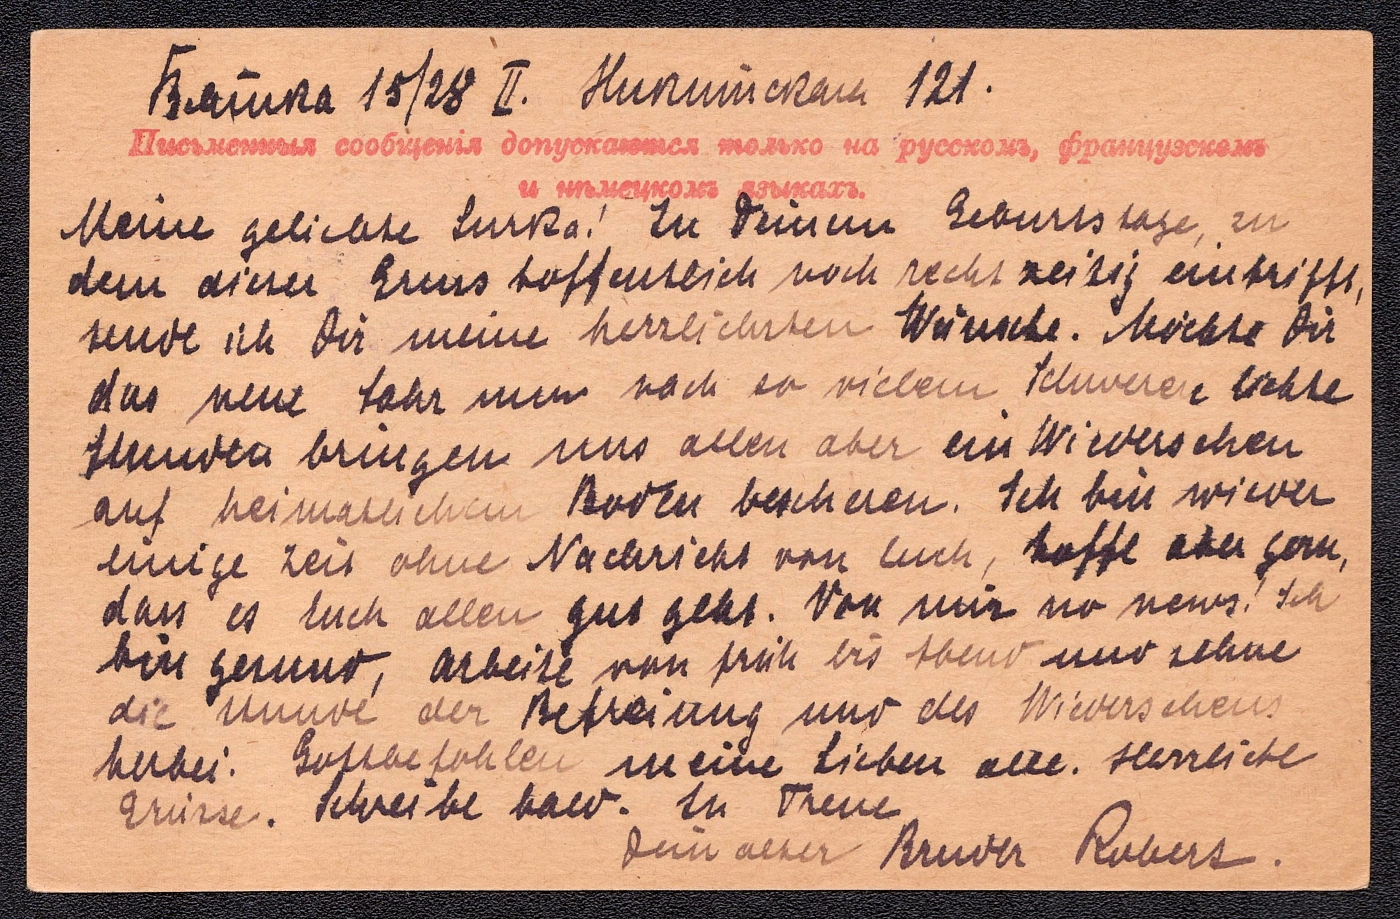 Вятка 15/28 II. Никитская 121.
Письменныя сообщенія допускаются только на русскомъ, французскомъ
и нѣмецкомъ языкахъ.
Meine geliebte Lurka! Zu Deinem Geburtstage, zu
dem dieser Gruss hoffentlich noch rechtzeitig eintrifft,
sende ich Dir meine herzlichsten Wünsche. Möchte Dir
das neue Jahr nun nach so vielem Schweren lichte
Stunden bringen uns allen aber ein Wiedersehen
auf heimatlichem Boden bescheren. Ich bin wieder
einige Zeit ohne Nachricht von Euch, hoffe aber gern,
dass es Euch allen gut geht. Von mir no news! Ich
bin gesund, arbeite von früh bis Abend und sehne
die Stunde der Befreiung und des Wiedersehens
herbei. Gottbefohlen meine Lieben alle. Herzliche
Grüsse. Schreibe bald. In Treue
Dein alter Bruder Robert.